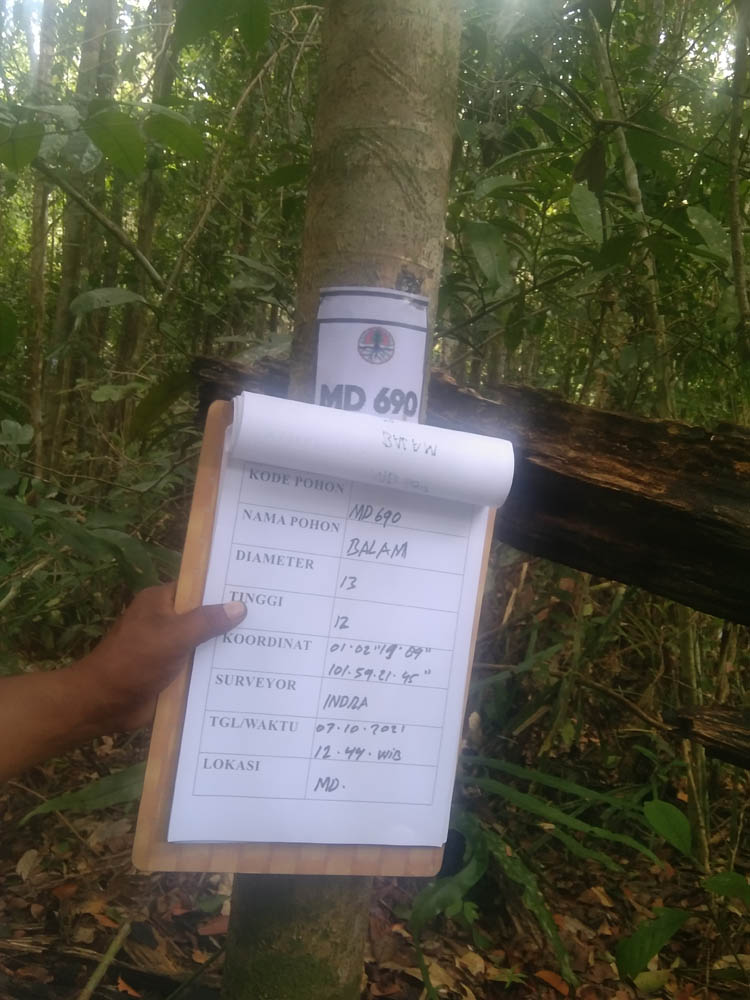 MD 690
BALAM
KODE POHON MD690
NAMA POHON BALAM
DIAMETER 13
TINGGI 12
KOORDINAT 01.02"19.09"
101.59.21.45"
SURVEYOR INDRA
TGL/WAKTU 07.10.2021
12.44.WIB
LOKASI MD.